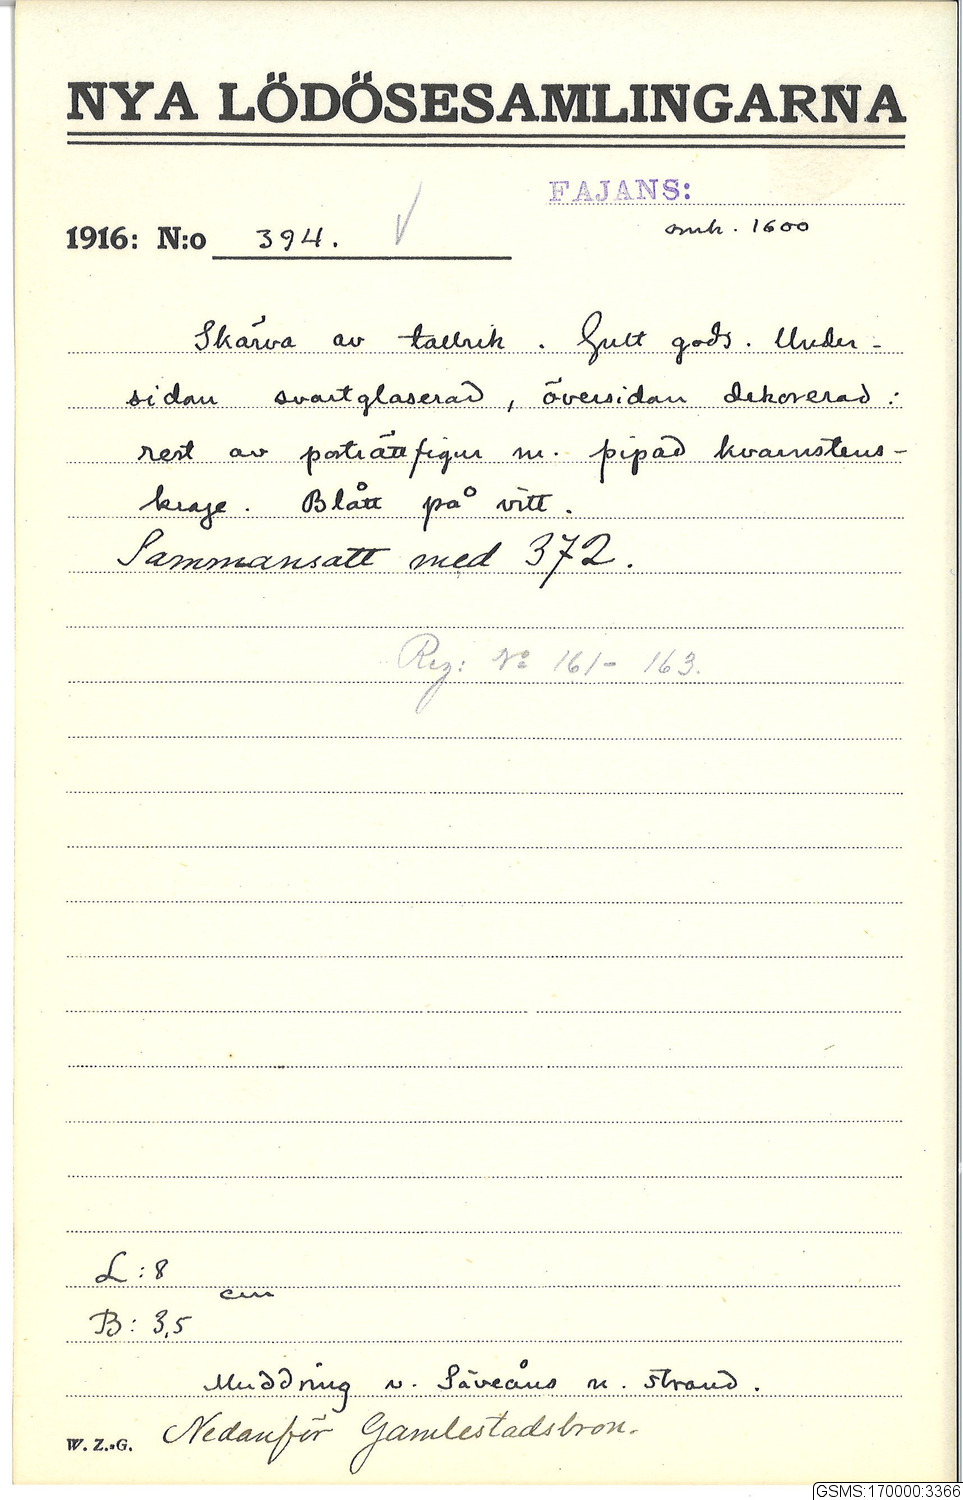 NYA LÖDÖSESAMLINGARNA
FAJANS:
1916: N:o 394. omk. 1600
Skärva av tallrik. Gult gods. Under-
sidan svartglaserad, översidan dekorerad:
rest av porträttfigur m. pipad kvarnstens-
krage. Blått på vitt.
Sammansatt med 372.
Reg: No 161-163.
L: 8
cm
B: 3,5
Muddring v. Säveåns n. strand.
Nedanför Gamlestadsbron.
W. Z.-G.
GSMS:170000:3366